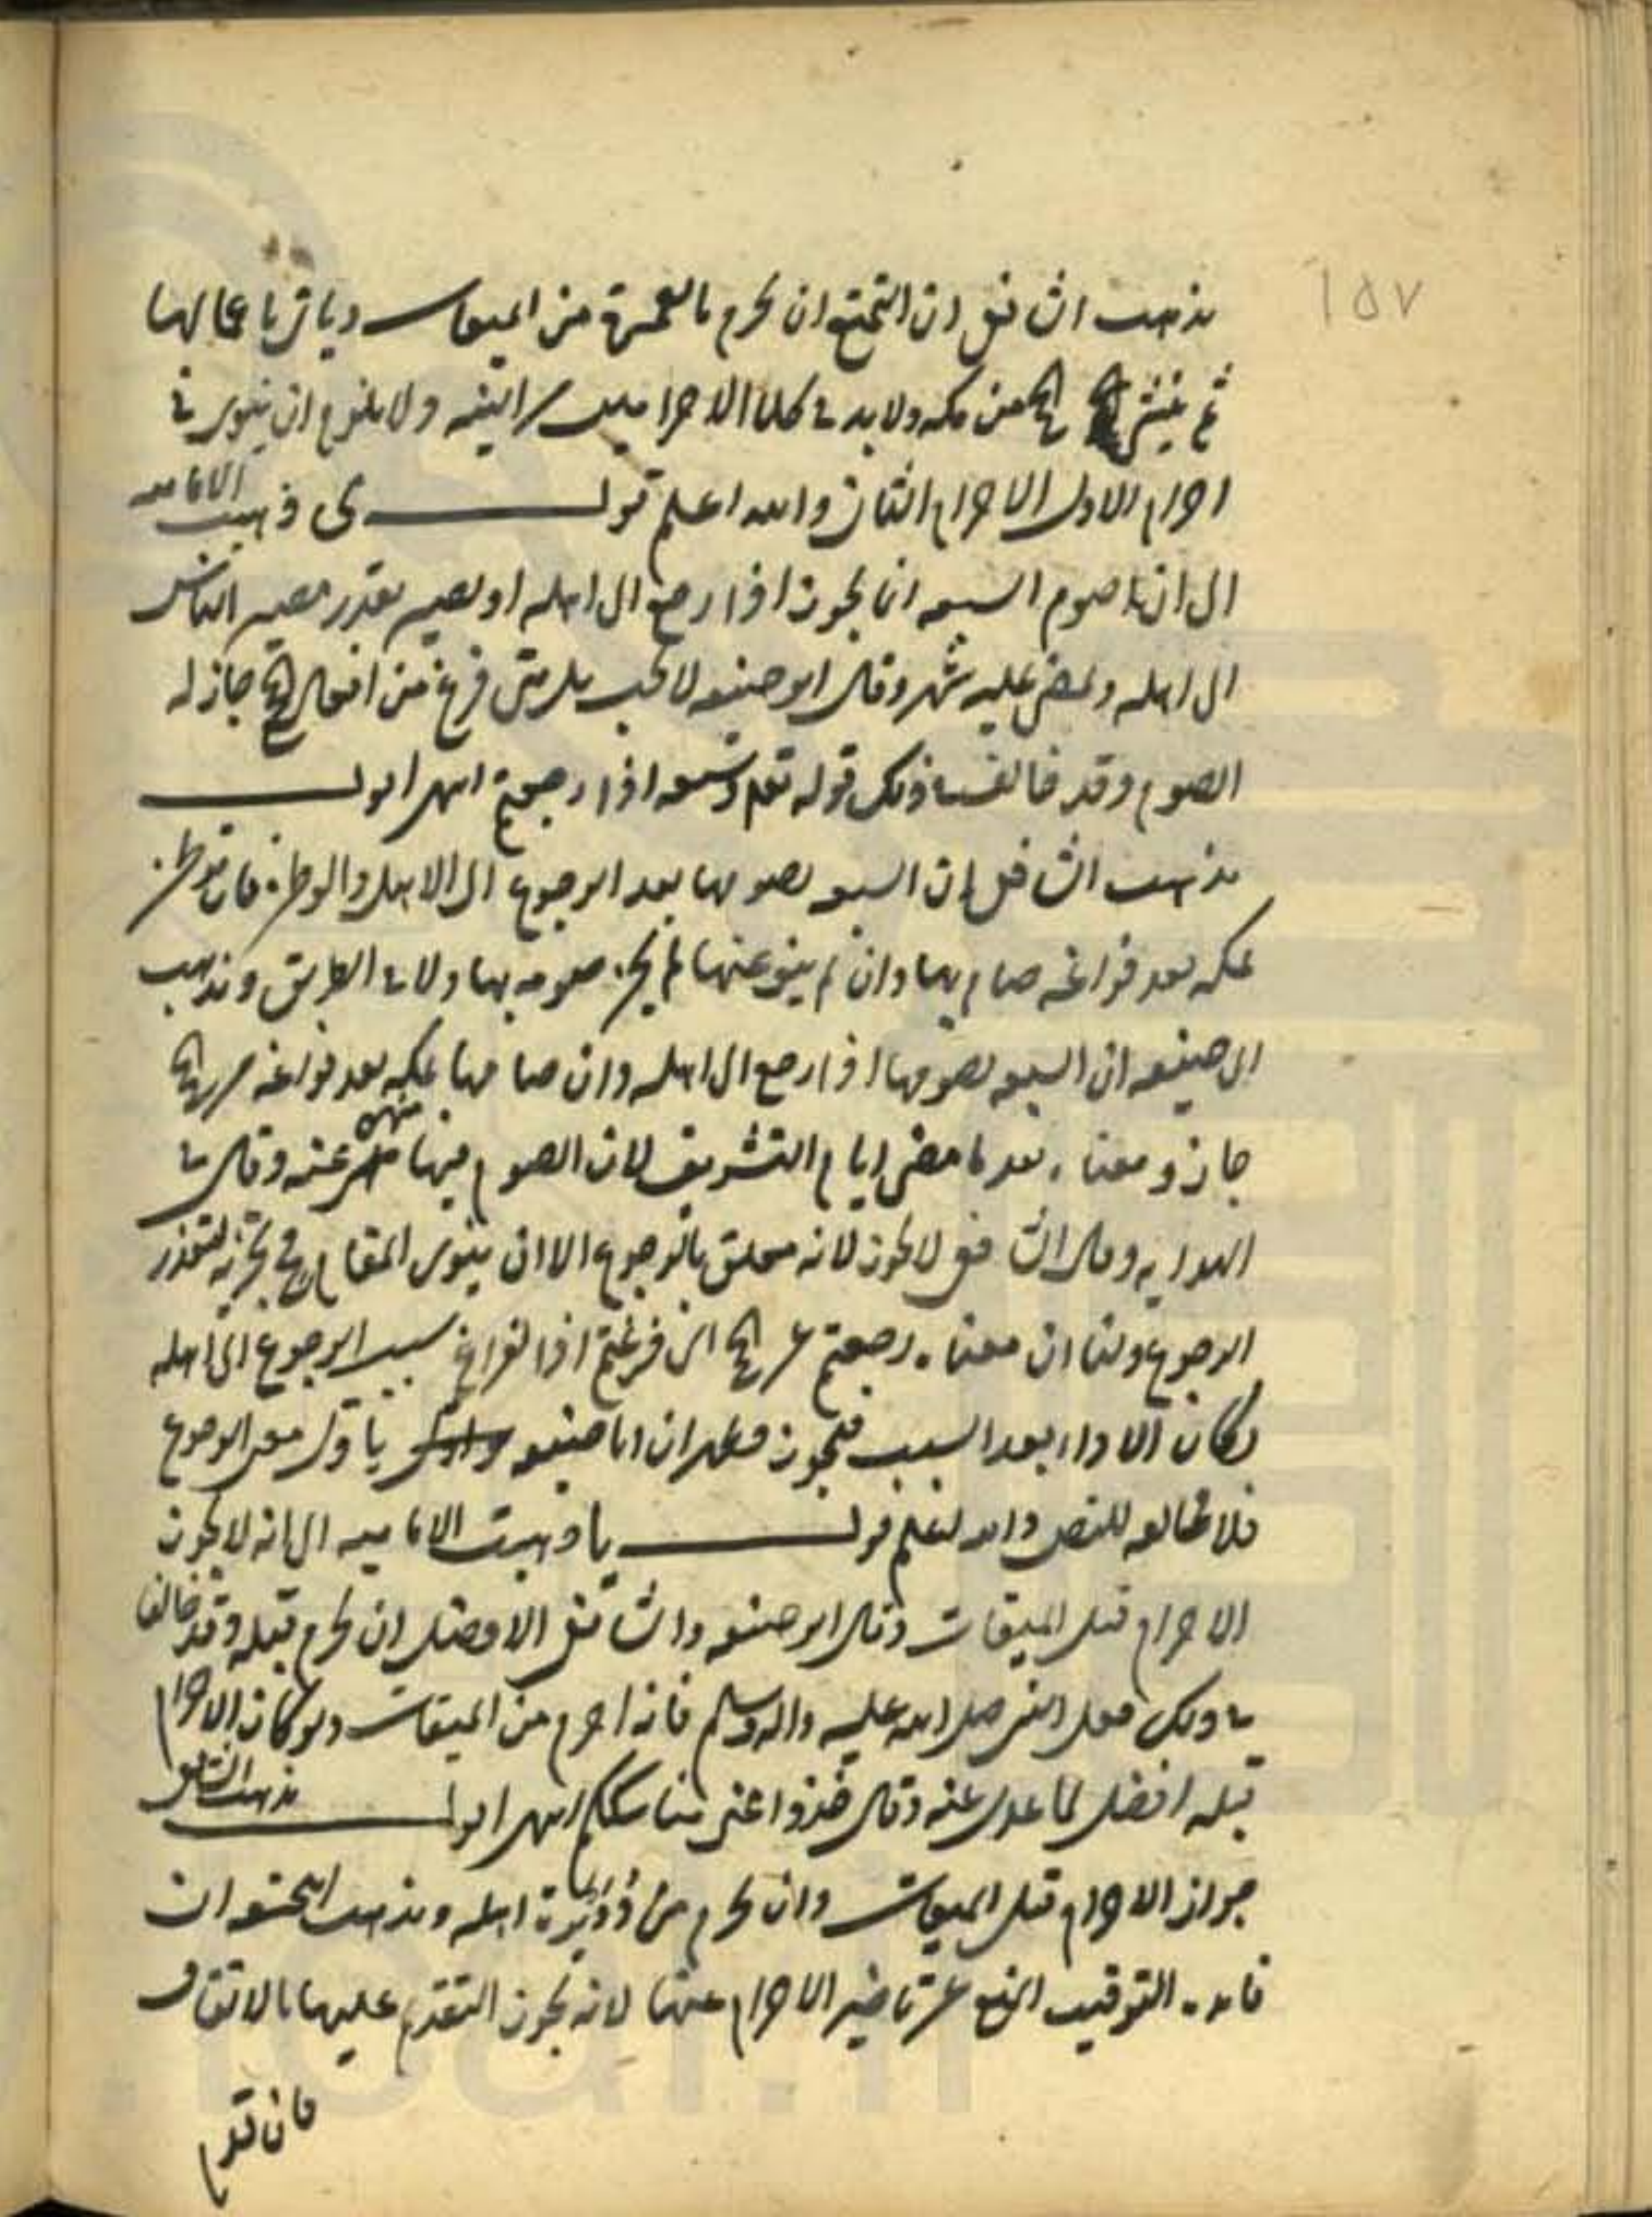 ١٥٧
مذهب الشافعي ان التمتع ان يحرم بالعمرة من الميقات وياتي باعمالها
ثم ينشئ الحج من مكه ولا بد في كلا الاحرامين من النيه ولا يلزم ان ينوي في
احرام الاول الاحرام الثاني والله اعلم قولــه ى ذهبت الاماميه
الى ان صوم السبعه انما يجوز اذا رجع الى اهله او يصير بقدر مصير الناس
الى اهله ويمضي عليه شهر وقال ابو حنيفه لا يجب بل متى فرغ من افعال الحج جاز له
الصوم وقد خالف في ذلك قوله تعالى وسبعه اذا رجعتم انتهى اقولــ
مذهب الشافعي ان السبعه يصومها بعد الرجوع الى الاهل والوطن فان توطن
بمكه بعد فراغه صام بها وان لم ينو عنها لم يجز صومه بها ولا في الطريق ومذهب
ابي حنيفه ان السبعه يصومها اذا رجع الى اهله وان صامها بمكه بعد فراغه من الحج
جاز ومعناه بعد ما مضى ايام التشريق لان الصوم فيها منهي عنه وقال في
الهدايه وقال الشافعي لا يجوز لانه معلق بالرجوع الا ان ينوي المقام فح يجزيه لتعذر
الرجوع ولنا ان معناه رجعتم عن الحج اي فرغتم اذا الفراغ سبب الرجوع الى اهله
فكان الاداء بعد السبب فيجوز فظهر ان ابا حنيفه ياول معنى الرجوع
فلا مخالفه للنص والله اعلم قولــه يا ذهبت الاماميه الى انه لا يجوز
الاحرام قبل الميقات وقال ابو حنيفه والشافعي الافضل ان يحرم قبله وقد خالفا
في ذلك فعل النبي صلى الله عليه واله وسلم فانه احرم من الميقات ولو كان الاحرام
قبله افضل لما عدل عنه وقال خذوا عني مناسككم انتهى اقولــ مذهب الشافعي
جواز الاحرام قبل الميقات وان يحرم من دويرة اهله ومذهب الحنفيه ان
فائده التوقيت المنع عن تاخير الاحرام عنها لانه يجوز التقديم عليها بالاتفاق
فان قدم